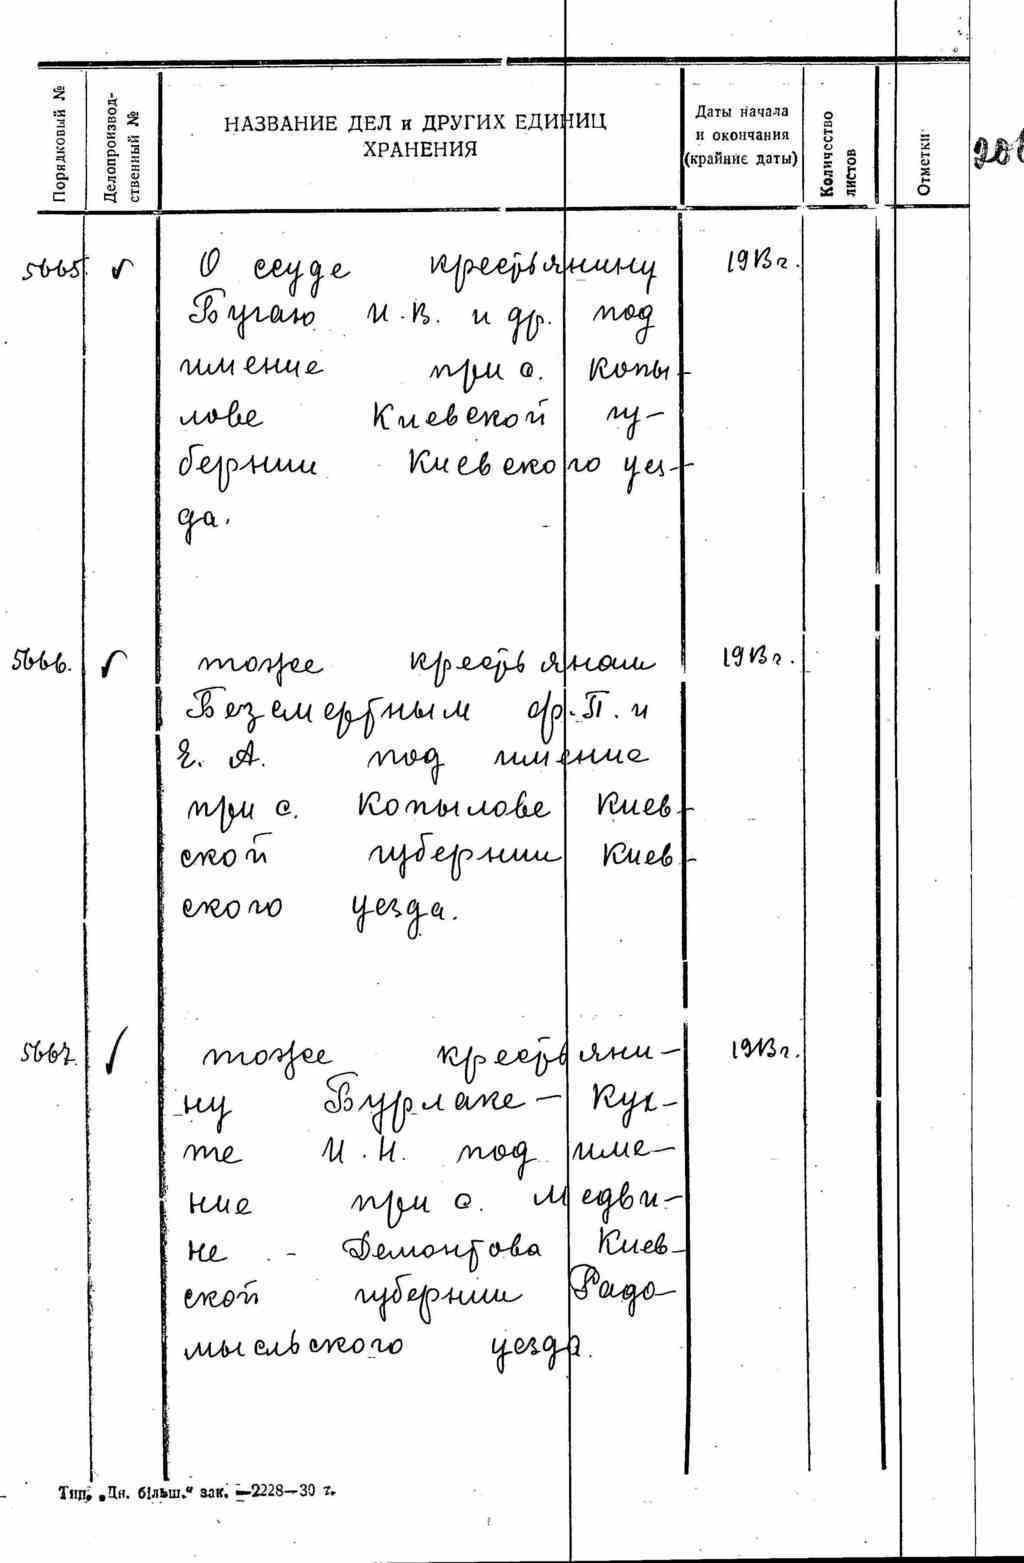 Порядковый №
Делопроизвод-
ственный №
НАЗВАНИЕ ДЕЛ и ДРУГИХ ЕДИНИЦ
ХРАНЕНИЯ
Даты начала
и окончания
(крайние даты)
Количество
листов
Отметки
5665 ✓ О ссуде крестьянину 1913 г.
Бугаю И.В. и др. под
имение при с. Копы-
лове Киевской гу-
бернии Киевского уез-
да.
5666. ✓ тоже крестьянам 1913 г.
Безсмертным Ф.П. и
Е. А. под имение
при с. Копылове Киев-
ской губернии Киев-
ского уезда.
5667. ✓ тоже крестьяни- 1913 г.
ну Бурлаке-
те И.Н. под име-
ние при с. Медви-
не - Демонтова Киев-
ской губернии Радо-
мысльского уезда.
Тип. „Дн. більш.“ зак. —2228—30 г.